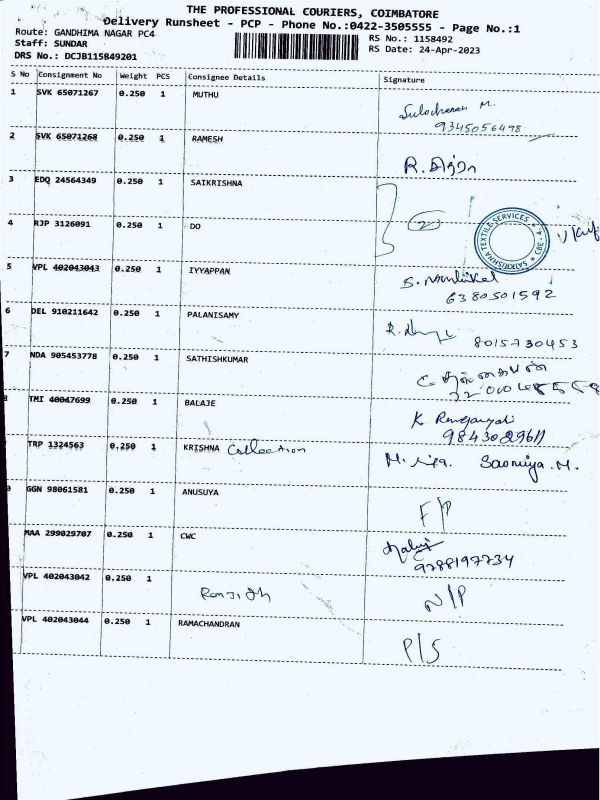 THE PROFESSIONAL COURIERS, COIMBATORE
Delivery Runsheet - PCP - Phone No.:0422-3505555 - Page No.:1
Route: GANDHIMA NAGAR PC4
RS No.: 1158492
Staff: SUNDAR
RS Date: 24-Apr-2023
DRS No.: DCJB115849201
S No Consignment No Weight PCS Consignee Details Signature
1 SVK 65071267 0.250 1 MUTHU
Sulocharan M.
9345056498
2 SVK 65071268 0.250 1 RAMESH
R.
3 EDQ 24564349 0.250 1 SAIKRISHNA
2
SAIKRISHNA TEXTILE SERVICES ★ CBE - 4. ★
4 RJP 3126091 0.250 1 DO
5 VPL 402043043 0.250 1 IYYAPPAN
S.
6380501592
6 DEL 910211642 0.250 1 PALANISAMY
R. 8015730453
7 NDA 905453778 0.250 1 SATHISHKUMAR
8 TMI 40047699 0.250 1 BALAJE
K
9843029611
TRP 1324563 0.250 1 KRISHNA Collection
M. Saomiya.M.
GGN 98061581 0.250 1 ANUSUYA
F/P
MAA 299029707 0.250 1 CWC
9788197734
VPL 402043042 0.250 1
Ranjith
N/P
VPL 402043044 0.250 1 RAMACHANDRAN
P/S